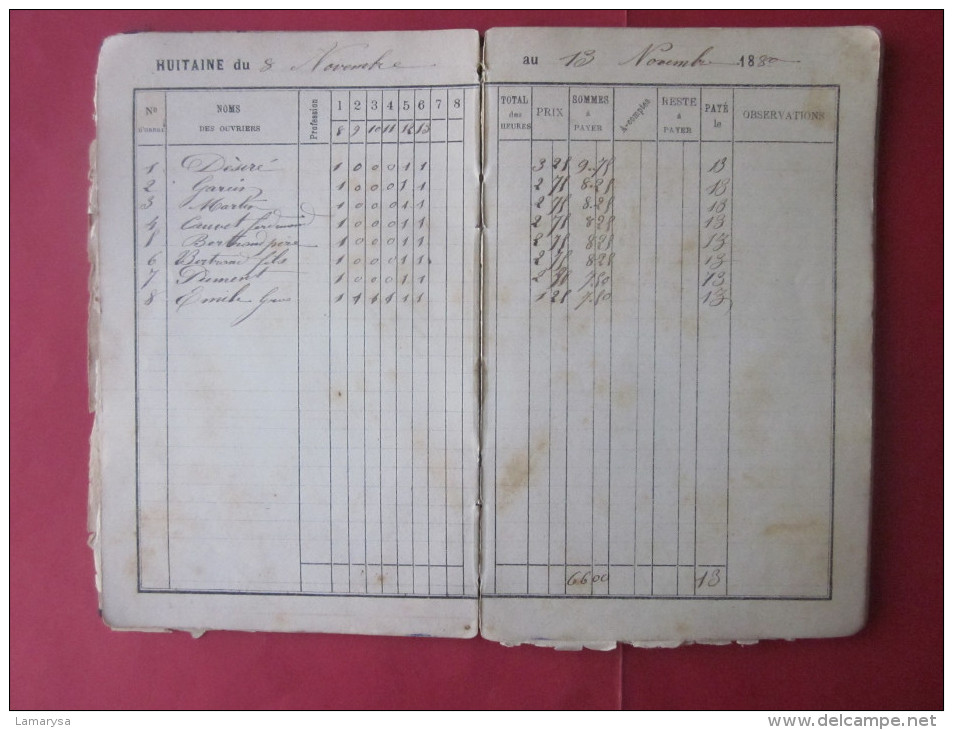 HUITAINE du 8 Novembre au 13 Novembre 1880
Nos D'ORDRE NOMS DES OUVRIERS Profession 1 2 3 4 5 6 7 8 TOTAL des HEURES PRIX SOMMES à PAYER A-comptes RESTE à PAYER PAYÉ le OBSERVATIONS
8 9 10 11 12 13
1 Désiré 1 0 0 0 1 1 3 25 9.75 13
2 Garcin 1 0 0 0 1 1 2 75 8.25 13
3 Martin 1 0 0 0 1 1 2 75 8.25 13
4 Cauvet 1 0 0 0 1 1 2 75 8 25 13
5 Bertrand père 1 0 0 0 1 1 2 75 8 25 13
6 Bertrand fils 1 0 0 0 1 1 2 75 8 25 13
7 1 0 0 0 1 1 2 7.50 13
8 Emile 1 1 1 1 1 1 1 25 7.50 13
66 00 13
Lamarysa
http://www.delcampe.net